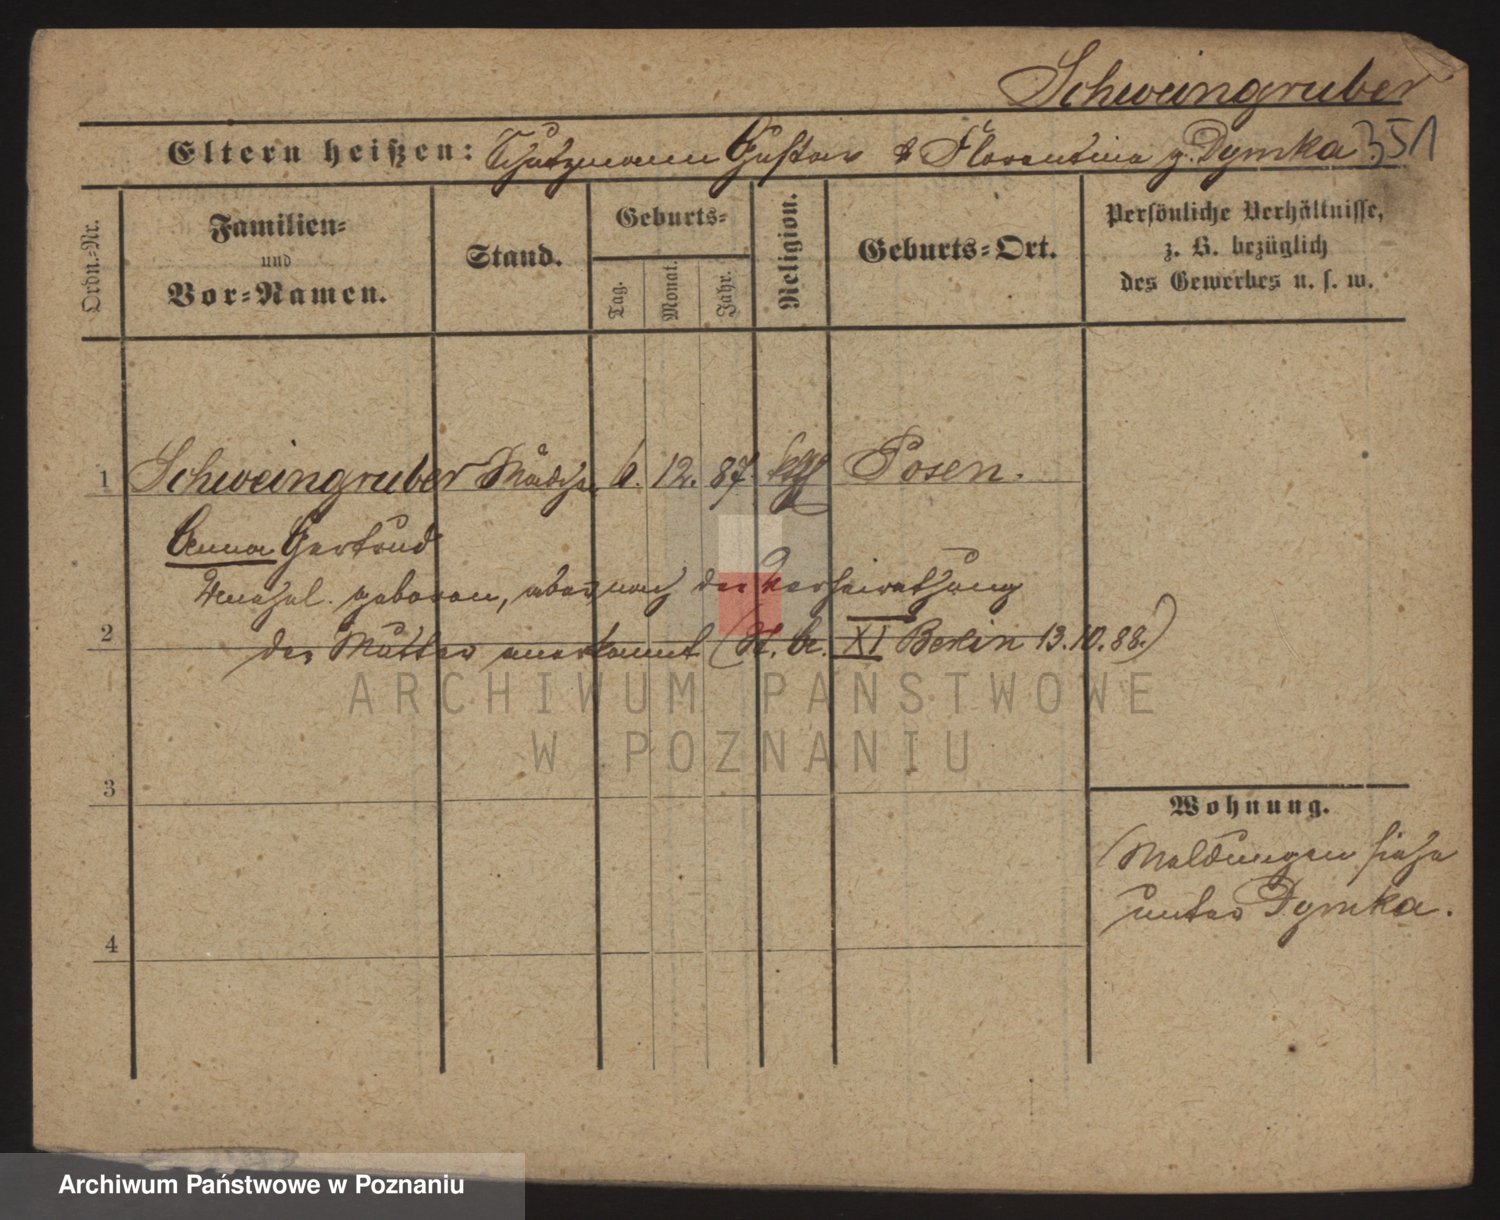 Schweingruber
Eltern heißen: Schutzmann Gustav & Florentina g. Dymka. 351
Ordn.-Nr.
Familien-
und
Vor-Namen.
Stand.
Geburts-
Tag.
Monat.
Jahr.
Religion.
Geburts-Ort.
Persönliche Verhältnisse,
z. B. bezüglich
des Gewerbes u. s. w.
1 Schweingruber Mädch. 6. 12. 87. Posen.
Anna Gertrud
Unehel. geboren, aber nach der Verheirathung
2 der Mutter anerkannt (St. A. XI Berlin 13.10.88.)
ARCHIWUM PAŃSTWOWE
W POZNANIU
3
Wohnung.
Meldungen siehe
unter Dymka.
4
Archiwum Państwowe w Poznaniu